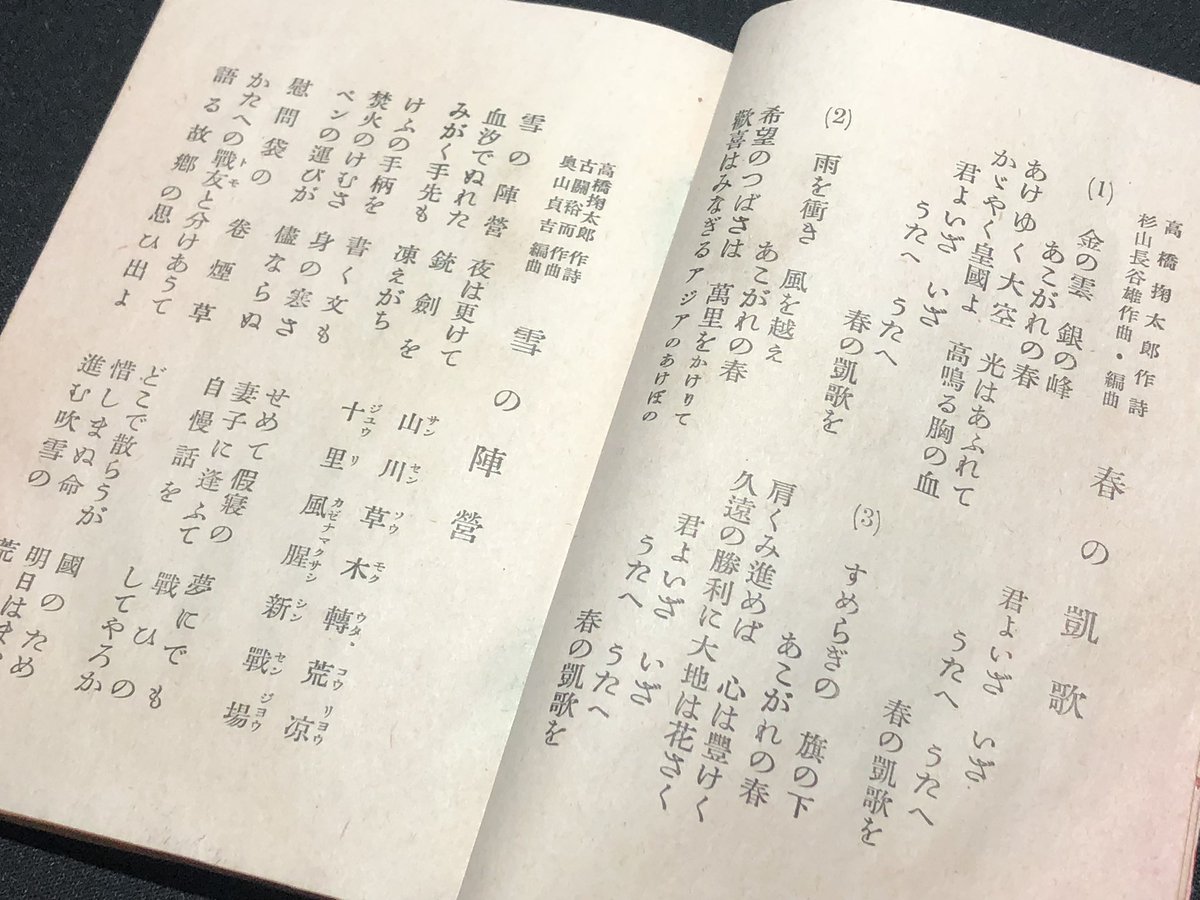 春の凱歌
高橋掬太郎作詩
杉山長谷雄作曲・編曲
(1)
金の雲　銀の峰
あこがれの春
あけゆく大空　光はあふれて
かゞやく皇國よ　高鳴る胸の血
君よいざ　いざ
うたへ　うたへ
春の凱歌を
(2)
雨を衝き　風を越え
あこがれの春
希望のつばさは　萬里をかけりて
歡喜はみなぎるアジアのあけぼの
君よいざ　いざ
うたへ　うたへ
春の凱歌を
(3)
すめらぎの　旗の下
あこがれの春
肩くみ進めば　心は豐けく
久遠の勝利に大地は花さく
君よいざ　いざ
うたへ　うたへ
春の凱歌を
雪の陣營
高橋掬太郎作詩
古關裕而作曲
奥山貞吉編曲
雪の陣營　夜は更けて
血汐でぬれた　銃劍を
みがく手先も　凍えがち
けふの手柄を　書く文も
焚火のけむさ　身の寒さ
ペンの運びが　儘ならぬ
慰問袋の　卷煙草
かたへの戰友と分けあうて
語る故郷の思ひ出よ
山川草木轉荒凉
十里風腥新戰場
せめて假寢の　夢にでも
妻子に逢ふて　戰ひの
自慢話を　してやろか
どこで散らうが　國のため
惜しまぬ命　明日はまた
進む吹雪の　荒